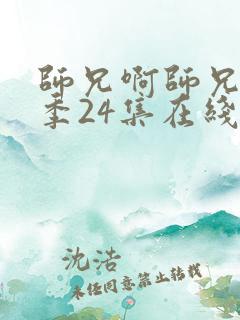 師兄啊師兄
季24集在綫
沈浩
未经同意禁止转载